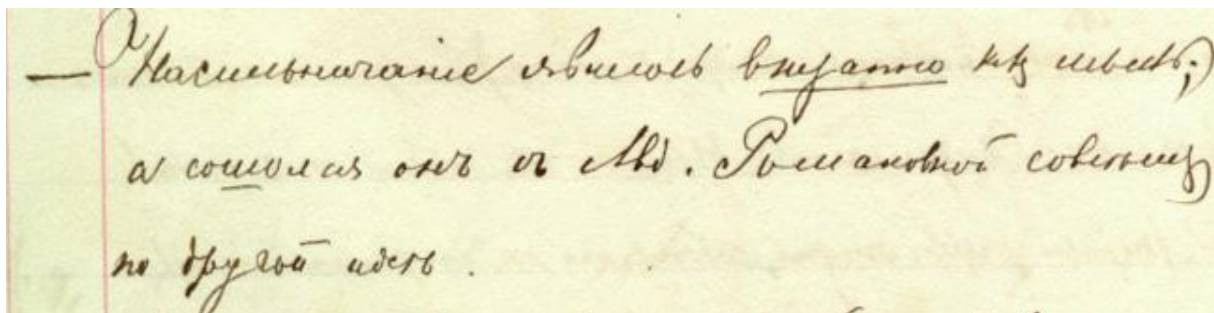 — Насильничание явилось внезапно какъ мысль;
а сошолся онъ съ Авд. Романовной совсѣмъ
по другой идеѣ.